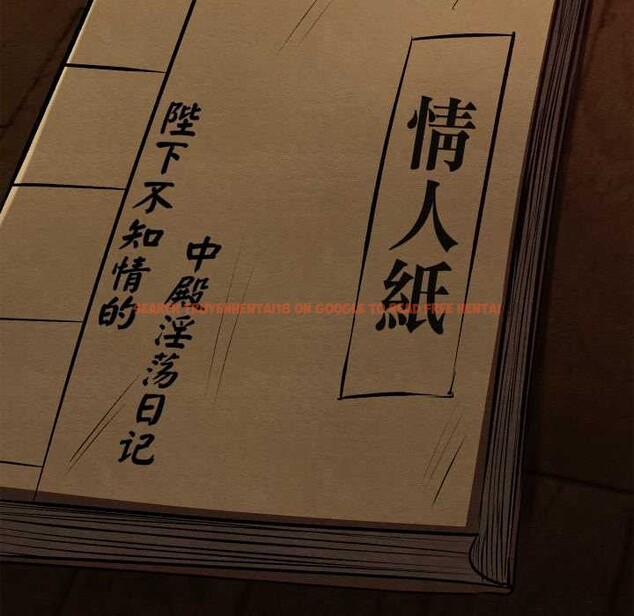 情人紙
陛下不知情的
中殿淫荡日记
SEARCH TROY6NHENTAI18 ON GOOGLE TO READ FREE HENTAI